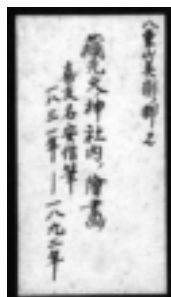 八重山美術部2
藏元火神社内ノ繪畫
喜友名安信筆
一八三一年――一八九二年